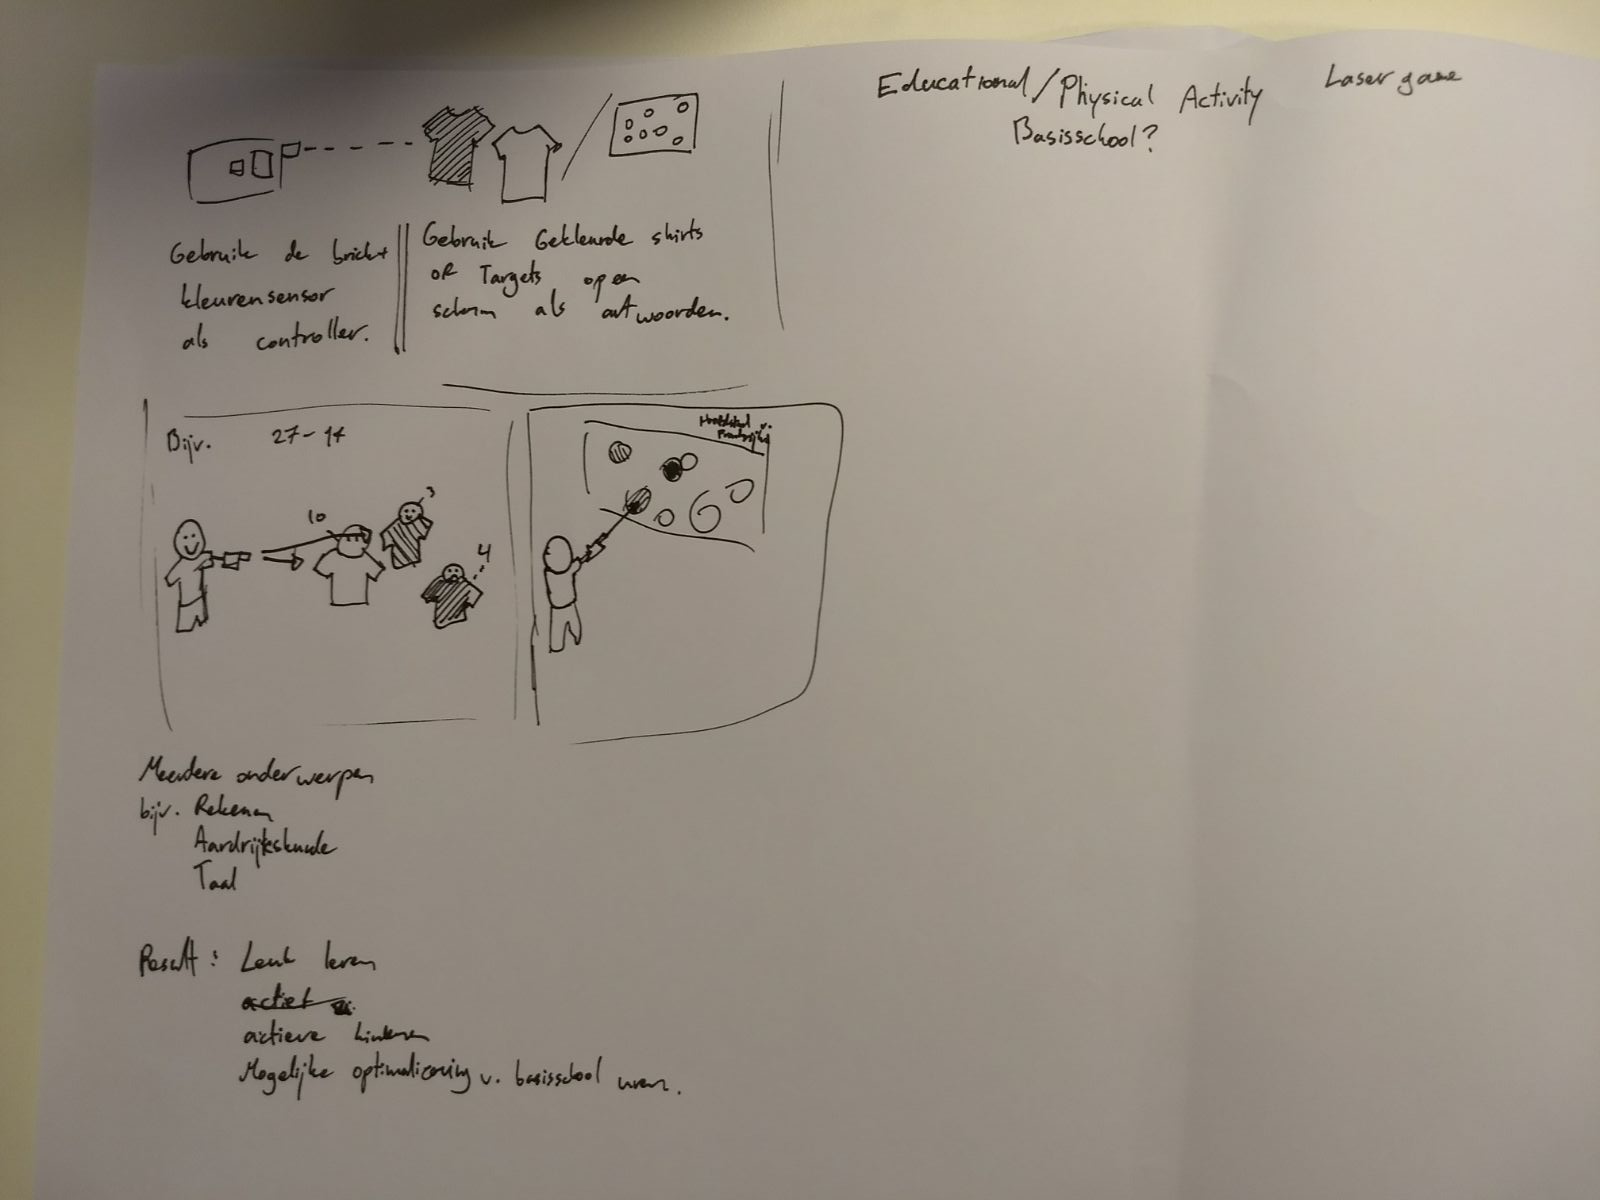 Educational/Physical Activity
Basisschool?
Laser game
Gebruik de brick+
kleurensensor
als controller.
Gebruik Gekleurde shirts
OR Targets op een
scherm als antwoorden.
Bijv. 27-17
10
3
4
Hoofdstad v.
Frankrijk
Meerdere onderwerpen
bijv. Rekenen
Aardrijkskunde
Taal
Result: Leuk leren
actief
actieve kinderen
Mogelijke optimalisering v. basisschool uren.